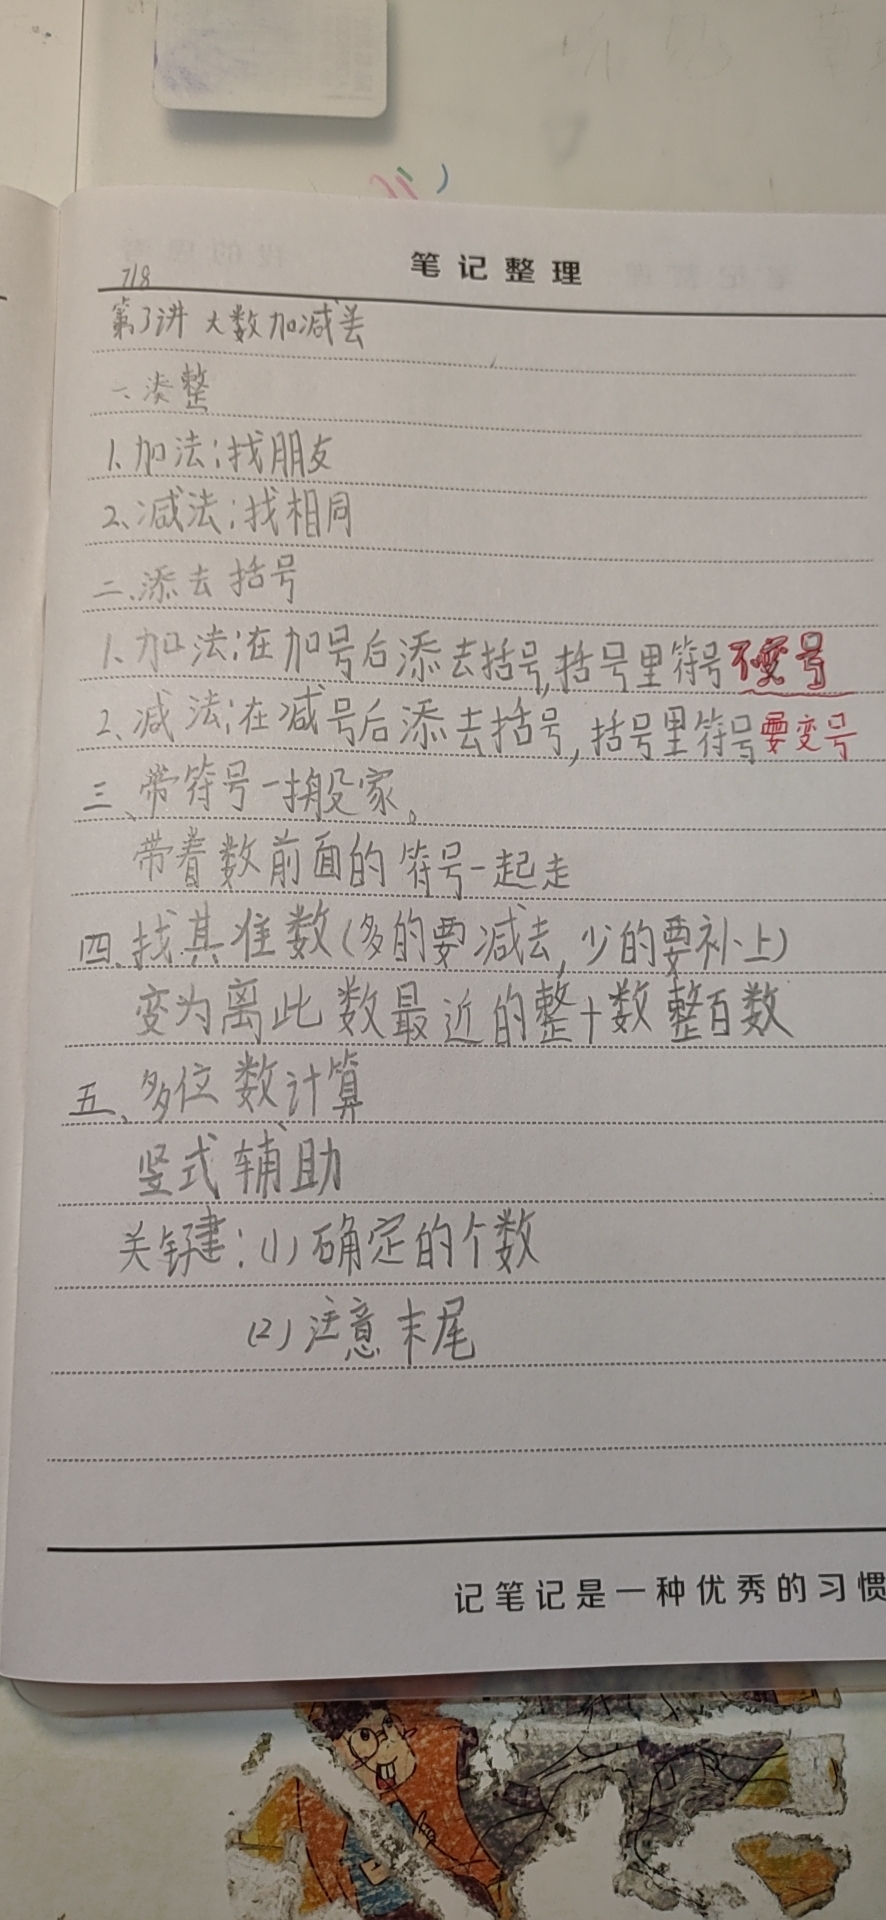 笔记整理
7/8
第3讲 大数加减法
一、凑整
1、加法:找朋友
2、减法:找相同
二、添去括号
1、加法:在加号后添去括号,括号里符号不变号
2、减法:在减号后添去括号,括号里符号要变号
三、带符号一搬家。
带着数前面的符号一起走
四、找其准数(多的要减去,少的要补上)
变为离此数最近的整十数整百数
五、多位数计算
竖式辅助
关键:(1)确定的个数
(2)注意末尾
记笔记是一种优秀的习惯